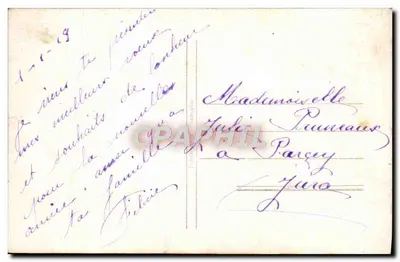 1-1-19
Je viens te présenter
mes meilleurs voeux
et souhaits de bonheur
pour la nouvelle
année ainsi qu'à
ta famille
Félicie
Mademoiselle
Julia
à Parcey
Jura